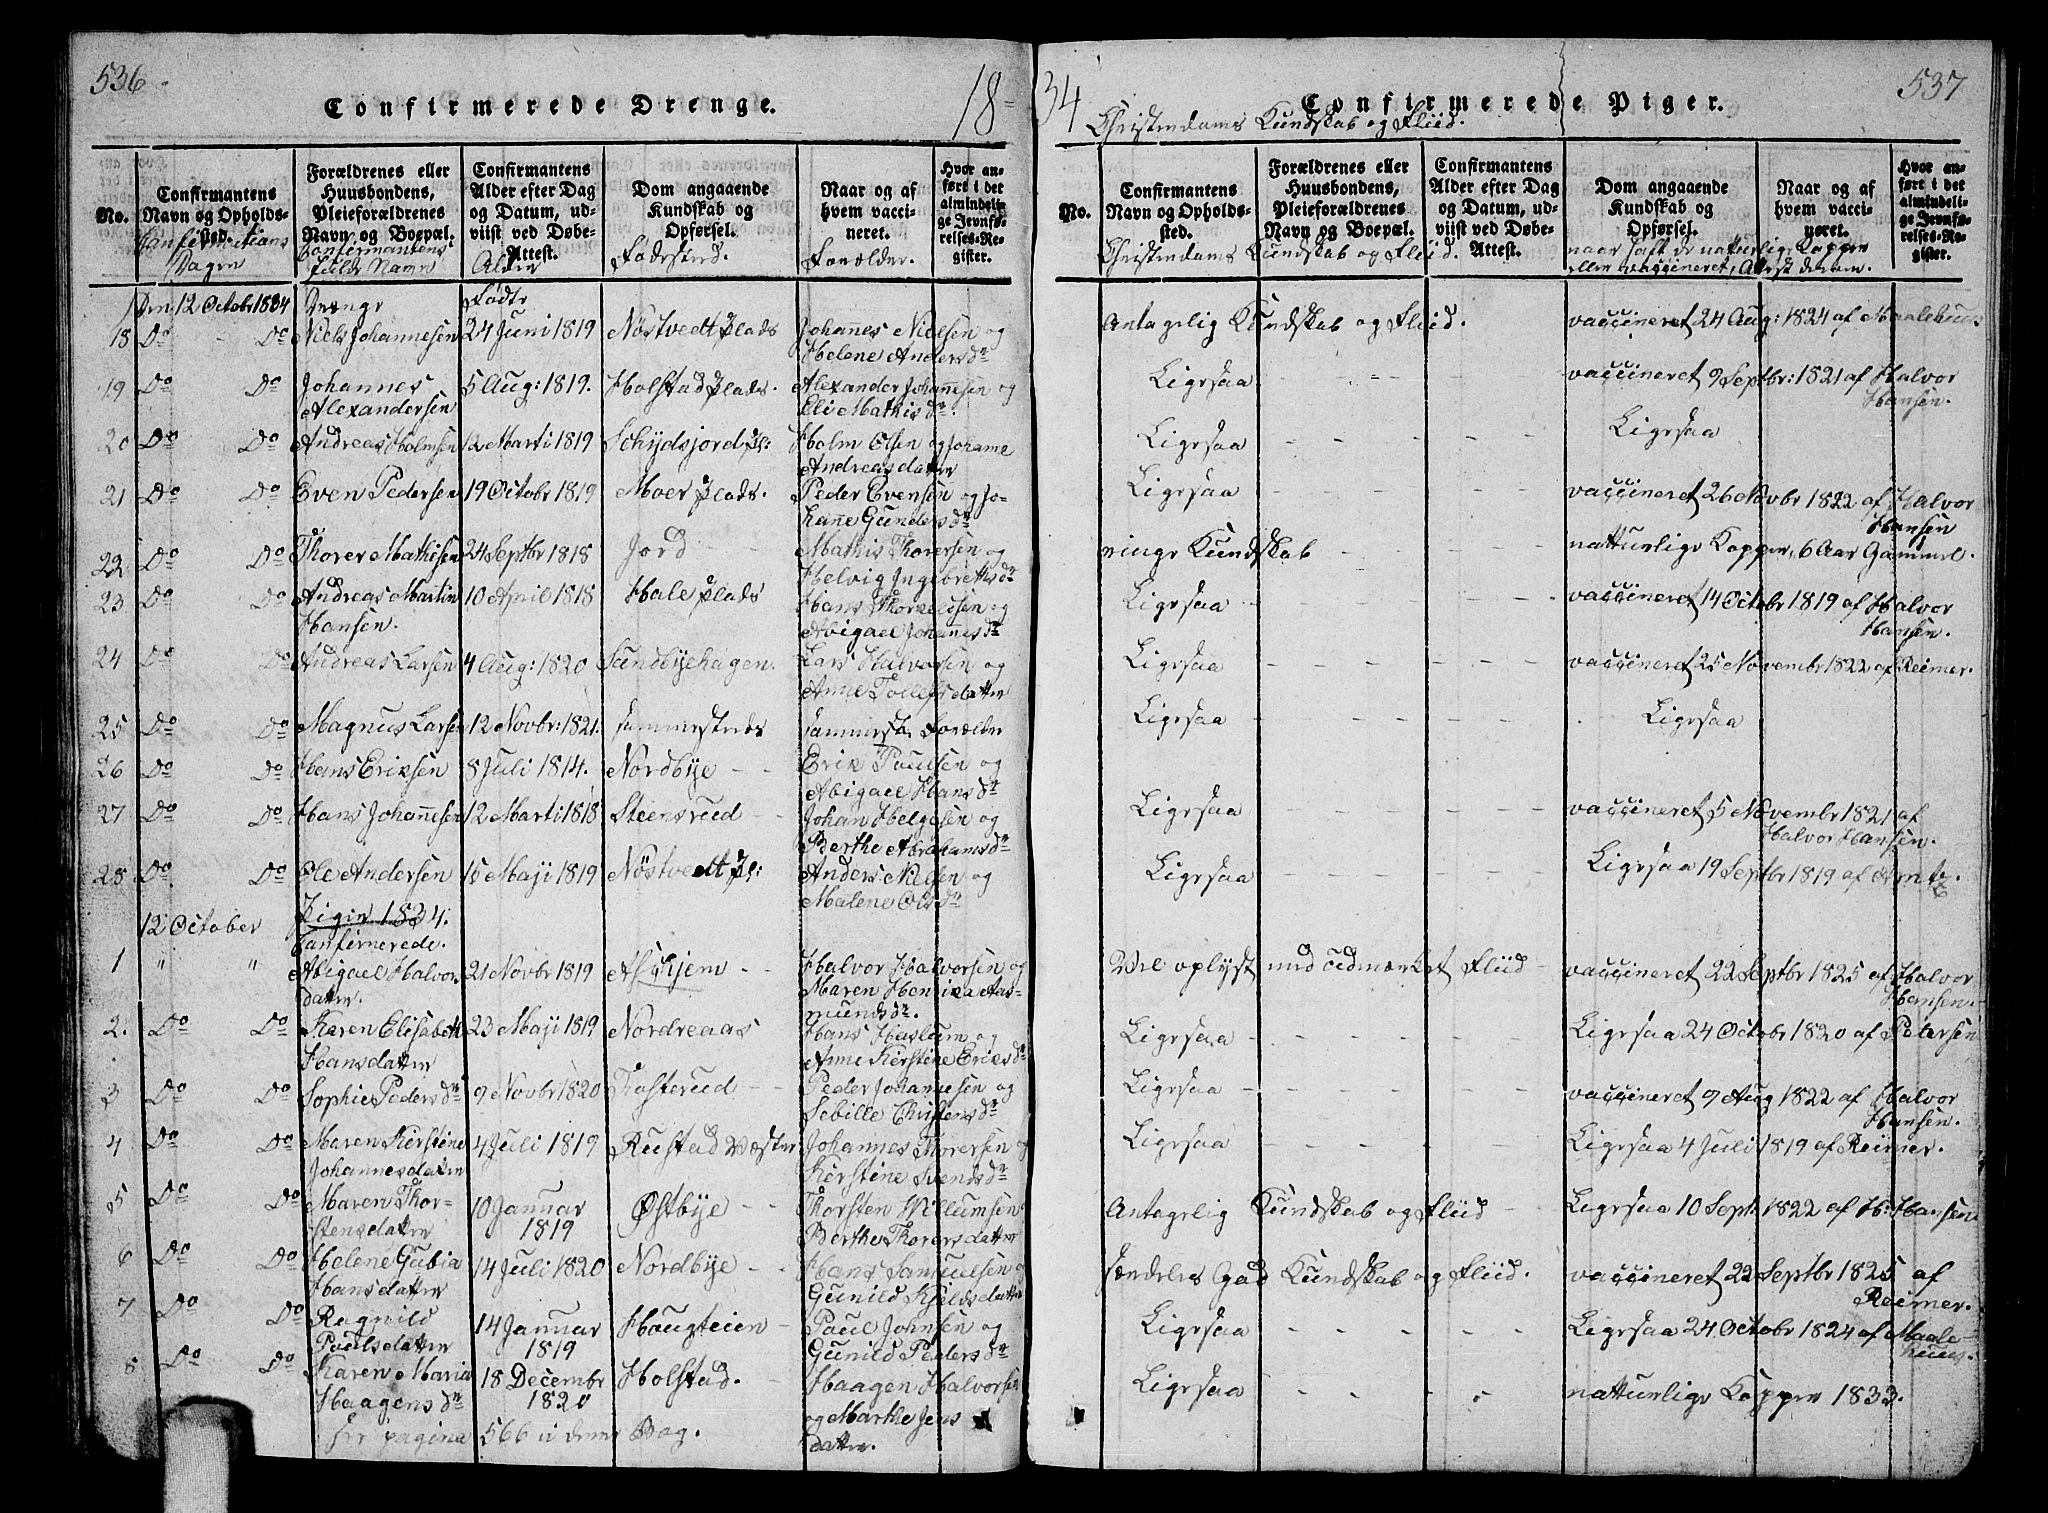 536
Confirmerede Drenge.
18=
No.
Confirmantens Navn og Opholds-sted.
Forældrenes eller Huusbondens, Pleieforældrenes Navn og Boepæl.
Confirmantens Alder efter Dag og Datum, ud-viist ved Døbe-Attest.
Dom angaaende Kundskab og Opførsel.
Naar og af hvem vacci-neret.
Hvor an-ført i det almindeli-ge Jevnfø-relses-Re-gister.
Confirmations Dagen
Confirmantens fulde Navn
Alder
Fødested.
Forælder.
Den 12 Octobr 1834 Drænge Fødte
18 Do Do Niels Johannesen 24 Juni 1819 Nöstvedt Plads Johanes Nielsen og
Helene Andersdr
19 Do Do Johannes 5 Aug: 1819. Holstad Plads. Alexander Johannesen og
Alexandersen Eli Mathisdr.
20 Do Do Andreas Holmsen 12 Marti 1819 Holm Olsen og Johanne
Andreasdatter
21 Do Do Even Pedersen 19 Octobr 1819 Moer Plads. Peder Evensen og Jo-
hanne Gundersdr
22 Do Do Thorer Mathisen 24 Septbr 1818 Jord Mathis Thorersen og
Helvig Ingebretsdr
23 Do Do Andreas Martin 10 April 1818 Hale Plads Hans Thorkeldsen og
Hansen. Abigael Johannesdr
24 Do Do Andreas Larsen 4 Aug: 1820 Sundbyehagen. Lars Halvorsen og
Anne Tollefsdatter
25 Do Do Magnus Larsen 12 Novbr: 1821. sammesteds samme Forælder
26 Do Do Hans Eriksen 8 Juli 1814. Nordbye - - Erik Paulsen og
Abigael Hansdr
27 Do Do Hans Johannesen 12 Marti 1818 Steensrud Johan Helgesen og
Berthe Abrahamsdr
28 Do Do Ole Andersen 15 Maji 1819 Nöstvedt Pl: Anders Nielsen og
Malene Olsdr
12 October Piger 1834.
Confirmerede.
1 " " Abigael Halvors 21 Novbr 1819 Askjem - - Halvor Halvorsen og
datter. Maren Henrika Aas-
mundsdr.
2. Do Do Karen Elisabeth 23 Maji 1819 Nordreaas Hans Haslum og
Hansdatter Anne Kirstine Eriksdr
3 Do Do Sophie Pedersdr 9 Novbr 1820 Fosterud - - Peder Johannesen og
Sebille Christensdr
4 Do Do Maren Kirstine 4 Juli 1819 Rustad Væster Johannes Thorersen og
Johannesdatter Kirstine Svendsdr
5 Do Do Maren Thor- 10 Januar Østbye - - Thorsten Willumsen
stensdatter 1819 Berthe Thorersdatter
6 Do Do Helene Gubia 14 Juli 1820 Nordbye - - Hans Samuelsen og
Hansdatter Gunild Kjeldsdatter
7 Do Do Ragnild 14 Januar Haugteien - Paul Johnsen og
Paulsdatter 1819 Gunild Pedersdr
8 Do Do Karen Maria 18 Decembr Holstad. - Haagen Halvorsen
Haagensdr 1820 og Marthe Jens
see pagina 566 i denne Bog. datter.
34
Confirmerede Piger.
537
Christendoms Kundskab og Fliid.
No.
Confirmantens Navn og Opholds-sted.
Forældrenes eller Huusbondens, Pleieforældrenes Navn og Boepæl.
Confirmantens Alder efter Dag og Datum, ud-viist ved Døbe-Attest.
Dom angaaende Kundskab og Opførsel.
Naar og af hvem vacci-neret.
Hvor an-ført i det almindeli-ge Jevnfø-relses-Re-gister.
Christendoms Kundskab og Fliid.
naar havt de naturlige Kopper
eller vaccineret, Attest derom.
Antagelig Kundskab og Fliid. vaccineret 24 Aug: 1824 af Maalehuus
Ligesaa - - - vaccineret 9 Septbr: 1821 af Halvor
Hansen.
Ligesaa - - - Ligesaa
Ligesaa - - - vaccineret 26 Novbr 1822 af Halvor
Hansen
ringe Kundskab - - - naturlige Kopper, 6 Aar Gammel.
Ligesaa - - - vaccineret 14 Octobr 1819 af Halvor
Hansen.
Ligesaa - - - vaccineret 25 Novembr 1822 af Reimer.
Ligesaa - - - Ligesaa
Ligesaa - - - vaccineret 5 Novembr 1821 af
Halvor Hansen.
Ligesaa - - - Ligesaa 19 Septbr 1819 af
Vel oplyst med udmærket Fliid - vaccineret 22 Septbr 1825 af Halvor
Hansen.
Ligesaa - - - Ligesaa 24 Octobr 1820 af Petersen
Ligesaa - - - vaccineret 9 Aug 1822 af Halvor
Hansen.
Ligesaa - - - Ligesaa 4 Juli 1819 af Reimer.
Antagelig Kundskab og Fliid - - Ligesaa 10 Sept: 1822 af H: Hansen
særdeles God Kundskab og Fliid. vaccineret 22 Septbr 1825 af
Reimer.
Ligesaa - - - Ligesaa 24 Octobr 1824 af Maale-
huus.
Ligesaa - - - naturlige Kopper 1833.